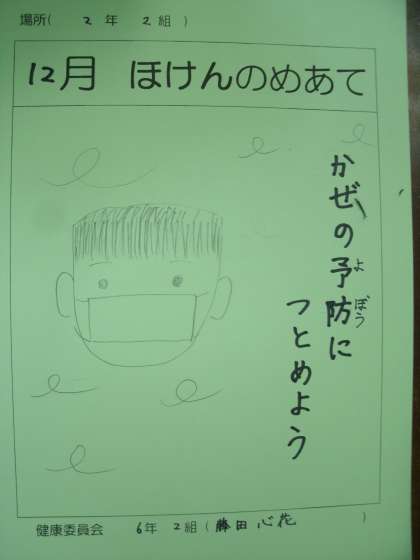 場所( 2年 2組 )
12月 ほけんのめあて
かぜの予防に
よぼう
つとめよう
健康委員会 6年 2組 (藤田 心花 )